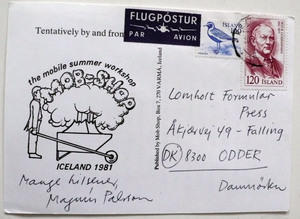 FLUGPÓSTUR
PAR AVION
ÍSLAND
ÍSLAND
120
Tentatively by and from
the mobile summer workshop
MOB-SHOP
ICELAND 1981
Published by Mob Shop, Box 7, 270 VARMÁ, Iceland
Lomholt Formular
Press
Åkjærvej 49 - Falling
DK 8300 ODDER
Danmörku
Mange hilsener,
Magnus Pálsson